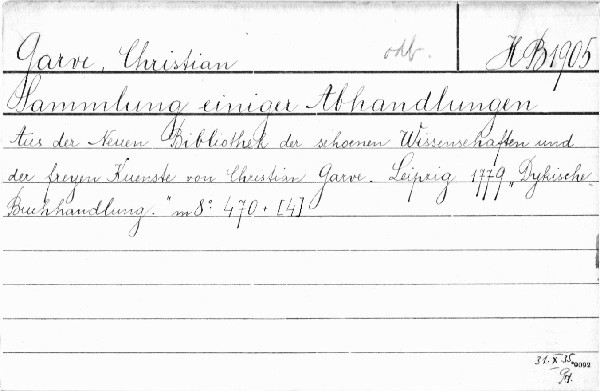 Garve, Christian odb. HB1905
Sammlung einiger Abhandlungen
Aus der Neuen Bibliothek der schoenen Wissenschaften und
der freyen Kuenste von Christian Garve. Leipzig 1779 „Dykische
Buchhandlung.“ m8° 470 + [4]
31. X 35. 9092